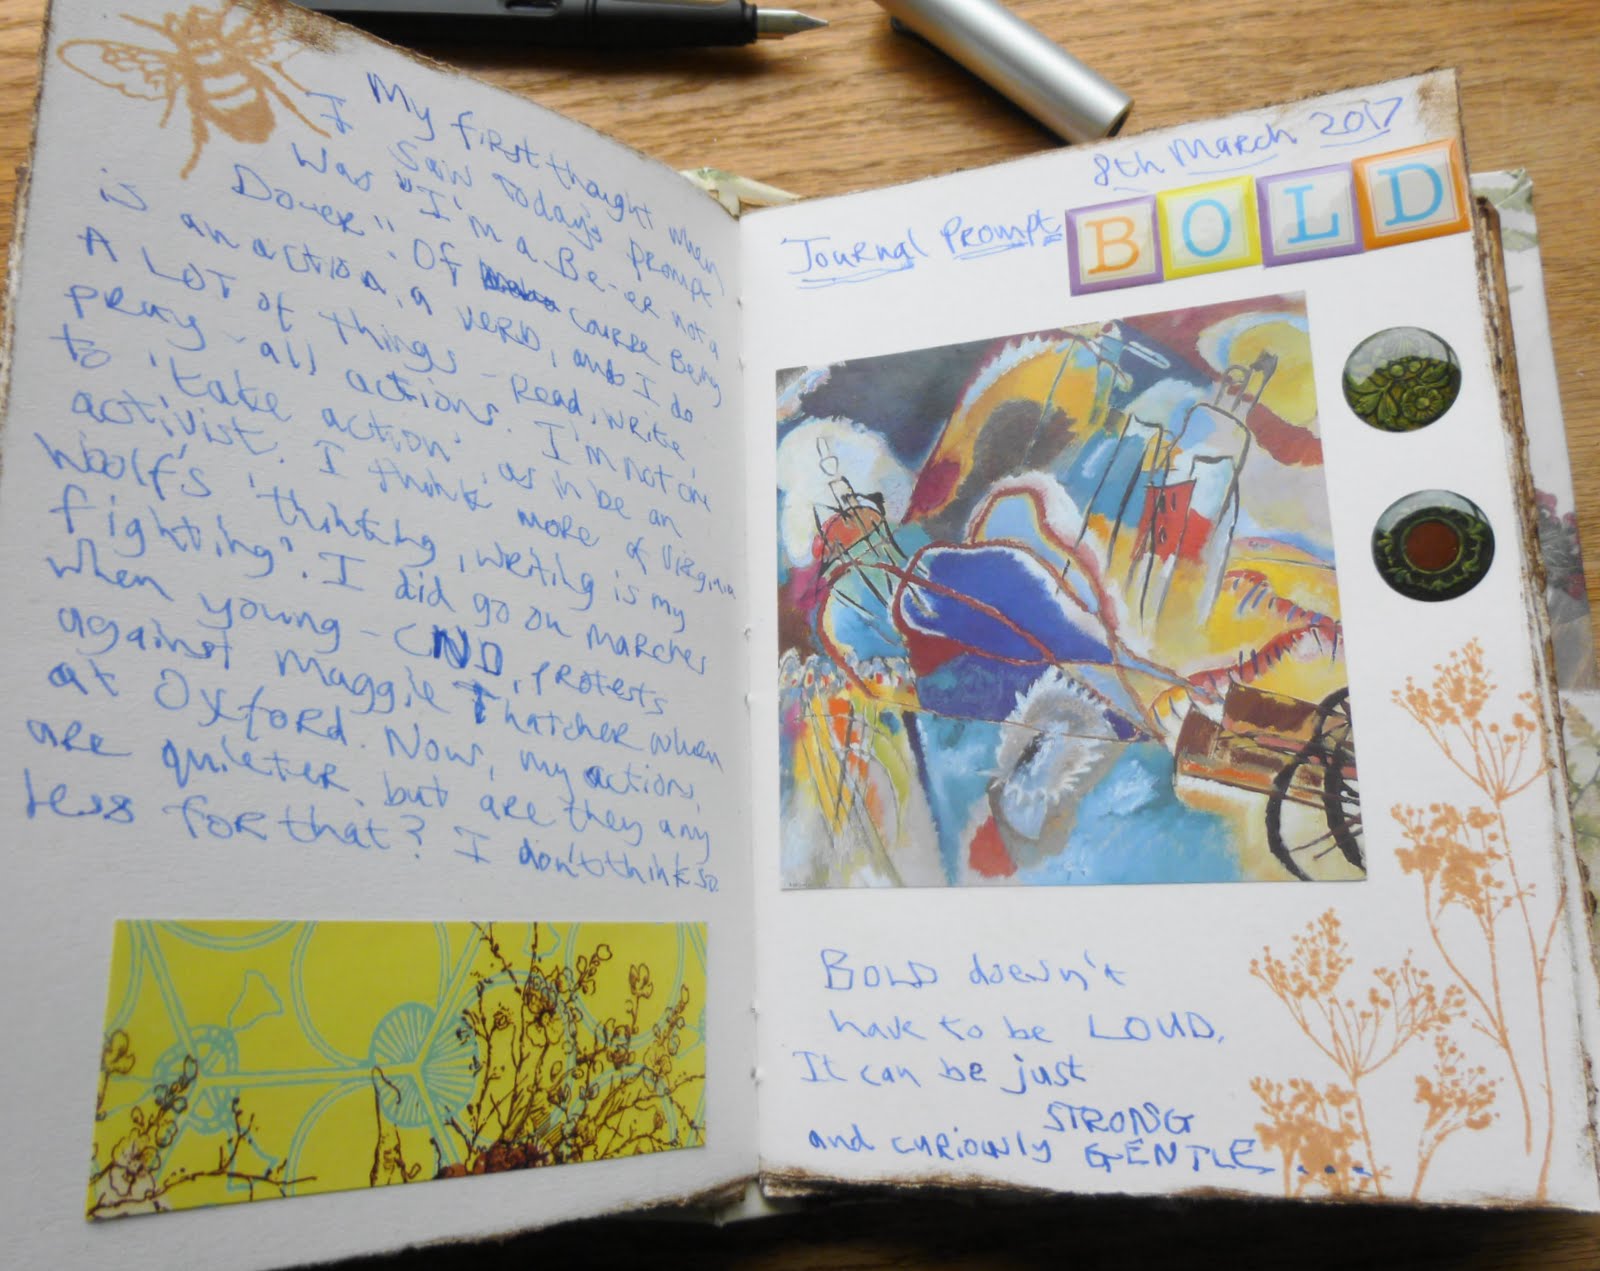 My first thought when
I saw Today's prompt
was "I'm a Be-er not a
Do-er". Of course Being
is an action, a verb, and I do
A LOT of things - Read, write,
pray - all actions. I'm not one
to 'take action', as in be an
activist. I think more of Virginia
Woolf's 'thinking, writing is my
fighting'. I did go on marches
when young - CND, protests
against Maggie Thatcher when
at Oxford. Now, my actions,
are quieter, but are they any
less for that? I don't think so.
8th March 2017
Journal Prompt BOLD
BOLD doesn't
have to be LOUD.
It can be just
STRONG
and curiously GENTLE...